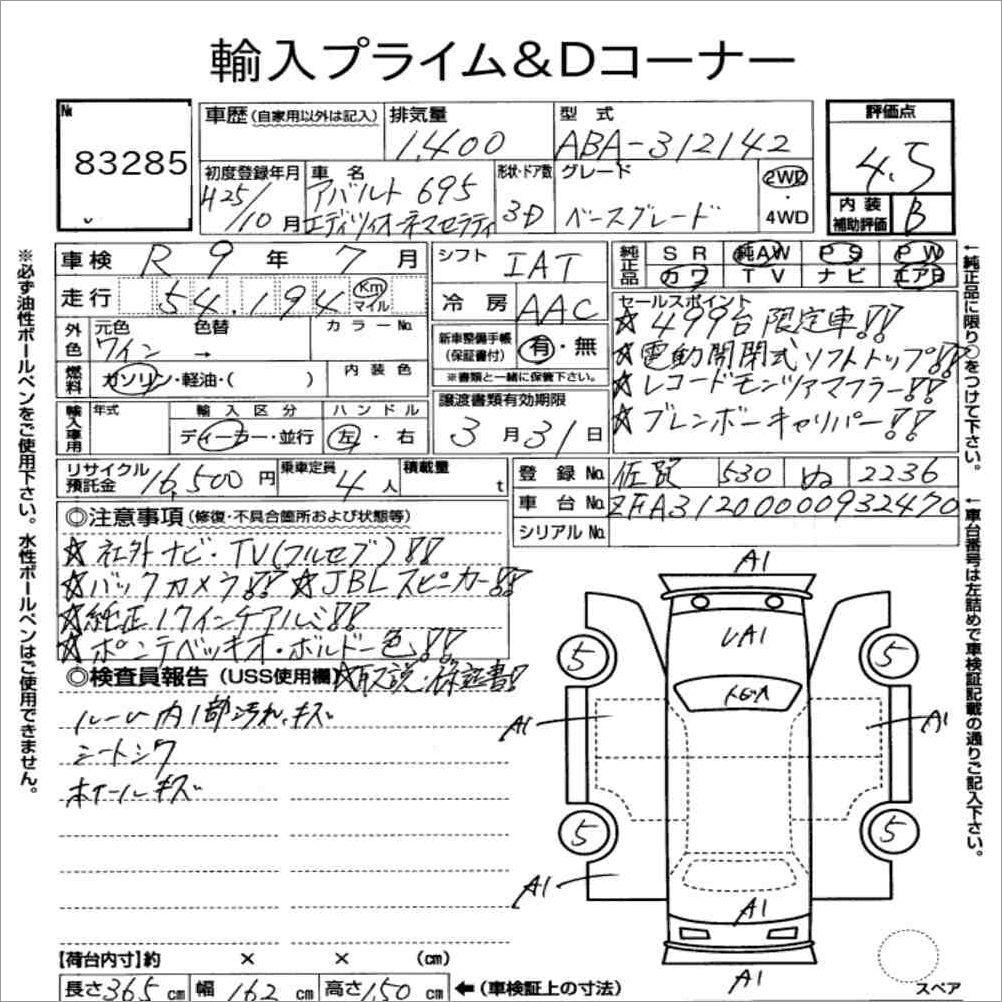 輸入プライム&Dコーナー
№
83285
車歴(自家用以外は記入)
排気量
1,400
型 式
ABA-312142
評価点
4.5
初度登録年月
H25/10月
車 名
アバルト 695
エディツィオーネマセラティ
形状・ドア数
3D
グレード
ベースグレード
2WD
・
4WD
内 装
補助評価
B
車 検 R 9 年 7 月
走 行 54,194 Km
マイル
シフト IAT
冷 房 AAC
純正品
SR 純AW PS PW
カワ TV ナビ エアB
外色
元色 色替
ワイン →
カラーNo.
燃料
ガソリン・軽油・( )
内 装 色
新車整備手帳
(保証書付)
有・無
※書類と一緒に保管下さい。
セールスポイント
☆499台限定車!!
☆電動開閉式ソフトトップ!!
☆レコードモンツァマフラー!!
☆ブレンボーキャリパー!!
輸入車用
年式
輸 入 区 分
ディーラー・並行
ハ ン ド ル
左・右
譲渡書類有効期限
3月31日
リサイクル
預託金
16,500円
乗車定員
4人
積載量
t
登 録 No. 佐賀 530 ぬ 2236
車 台 No. ZFA31200000932470
シリアル No.
◎注意事項(修復・不具合箇所および状態等)
☆社外ナビ・TV(フルセブ)!!
☆バックカメラ!! ☆JBLスピーカー!!
☆純正17インチアルミ!!
☆ポンテベッキオ・ボルドー色!!
☆取説・保証書!!
◎検査員報告(USS使用欄)
ルーム内1部汚れ、キズ
シートシワ
ホイールキズ
A1
UA1
5
5
A1
A1
5
5
A1
A1
A1
スペア
【荷台内寸】約 × × (cm)
長さ365cm 幅162cm 高さ150cm ←(車検証上の寸法)
※必ず油性ボールペンをご使用下さい。水性ボールペンはご使用できません。
←純正品に限り○をつけて下さい。
←車台番号は左詰めで車検証記載の通りご記入下さい。